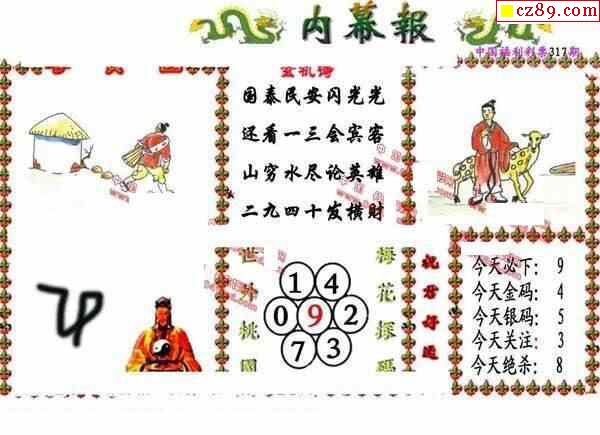 cz89.com
内幕報
中国福利彩票317期
国泰民安闪光光
还看一三会宾客
山穷水尽论英雄
二九四十发横财
世外桃園
1 4
0 9 2
7 3
梅花探码
祝君好运
今天必下: 9
今天金码: 4
今天银码: 5
今天关注: 3
今天绝杀: 8